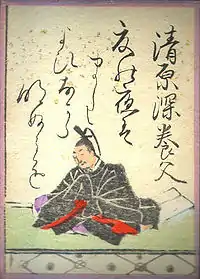 清原深養父
夏の夜は
また
よひなから
明ぬるを